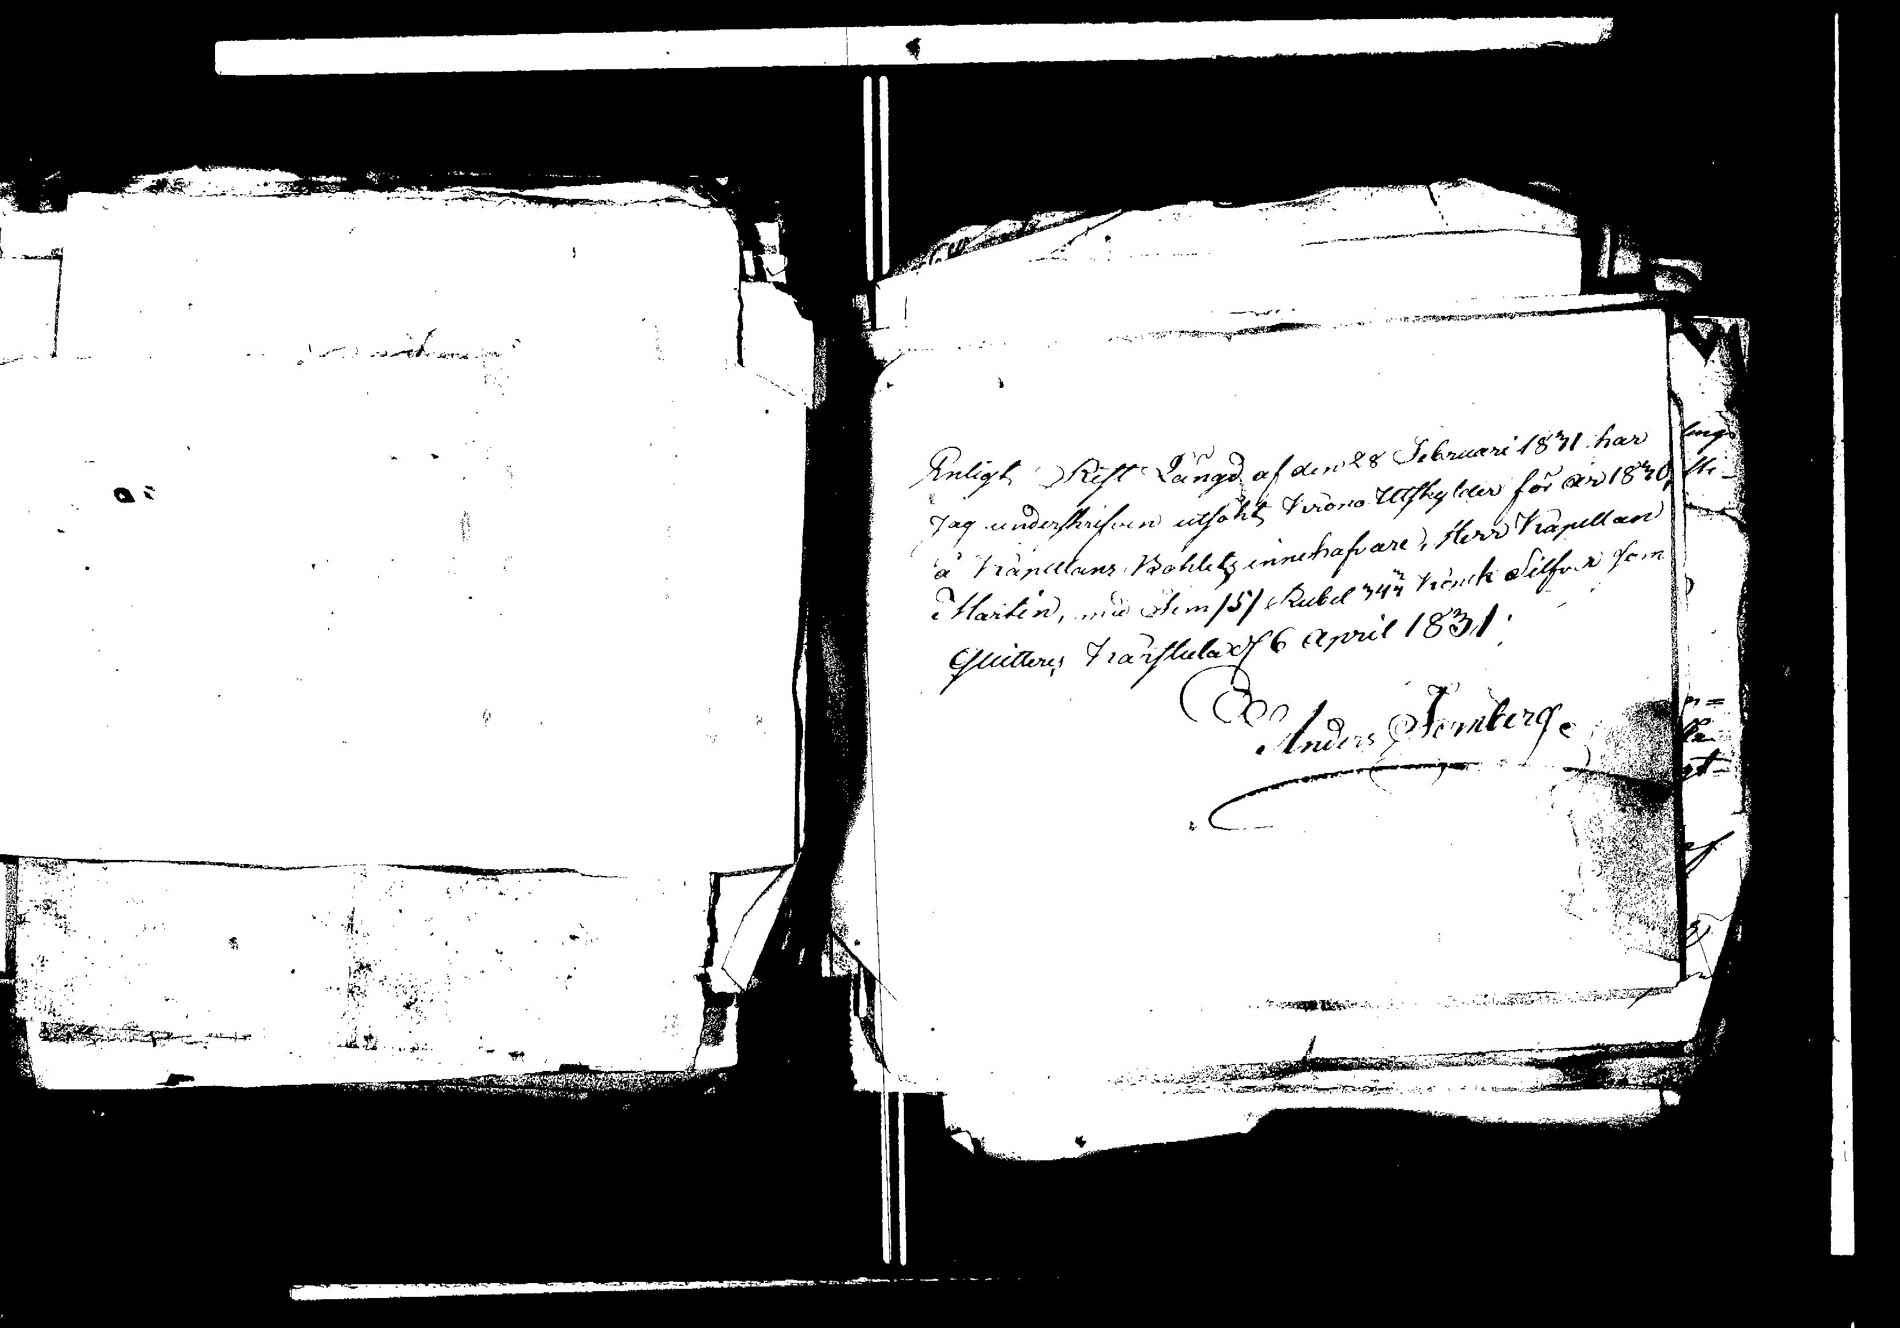 Enligt Rest Längd af den 28 Februari 1831 har
Jag underskrifven utsökt Krono Utskylder för år 1830,
å Kapellans Bohlets innehafvare, Herr Kapellan
Martin, med Fem /5/ Rubel Kopek Silfver som
Quitteras Karstula af 6 April 1831.
Anders Fernberg